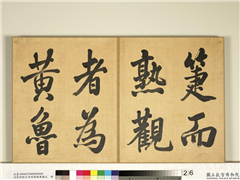 箑而
熟觀
者為
黃魯
26
國立故宮博物院